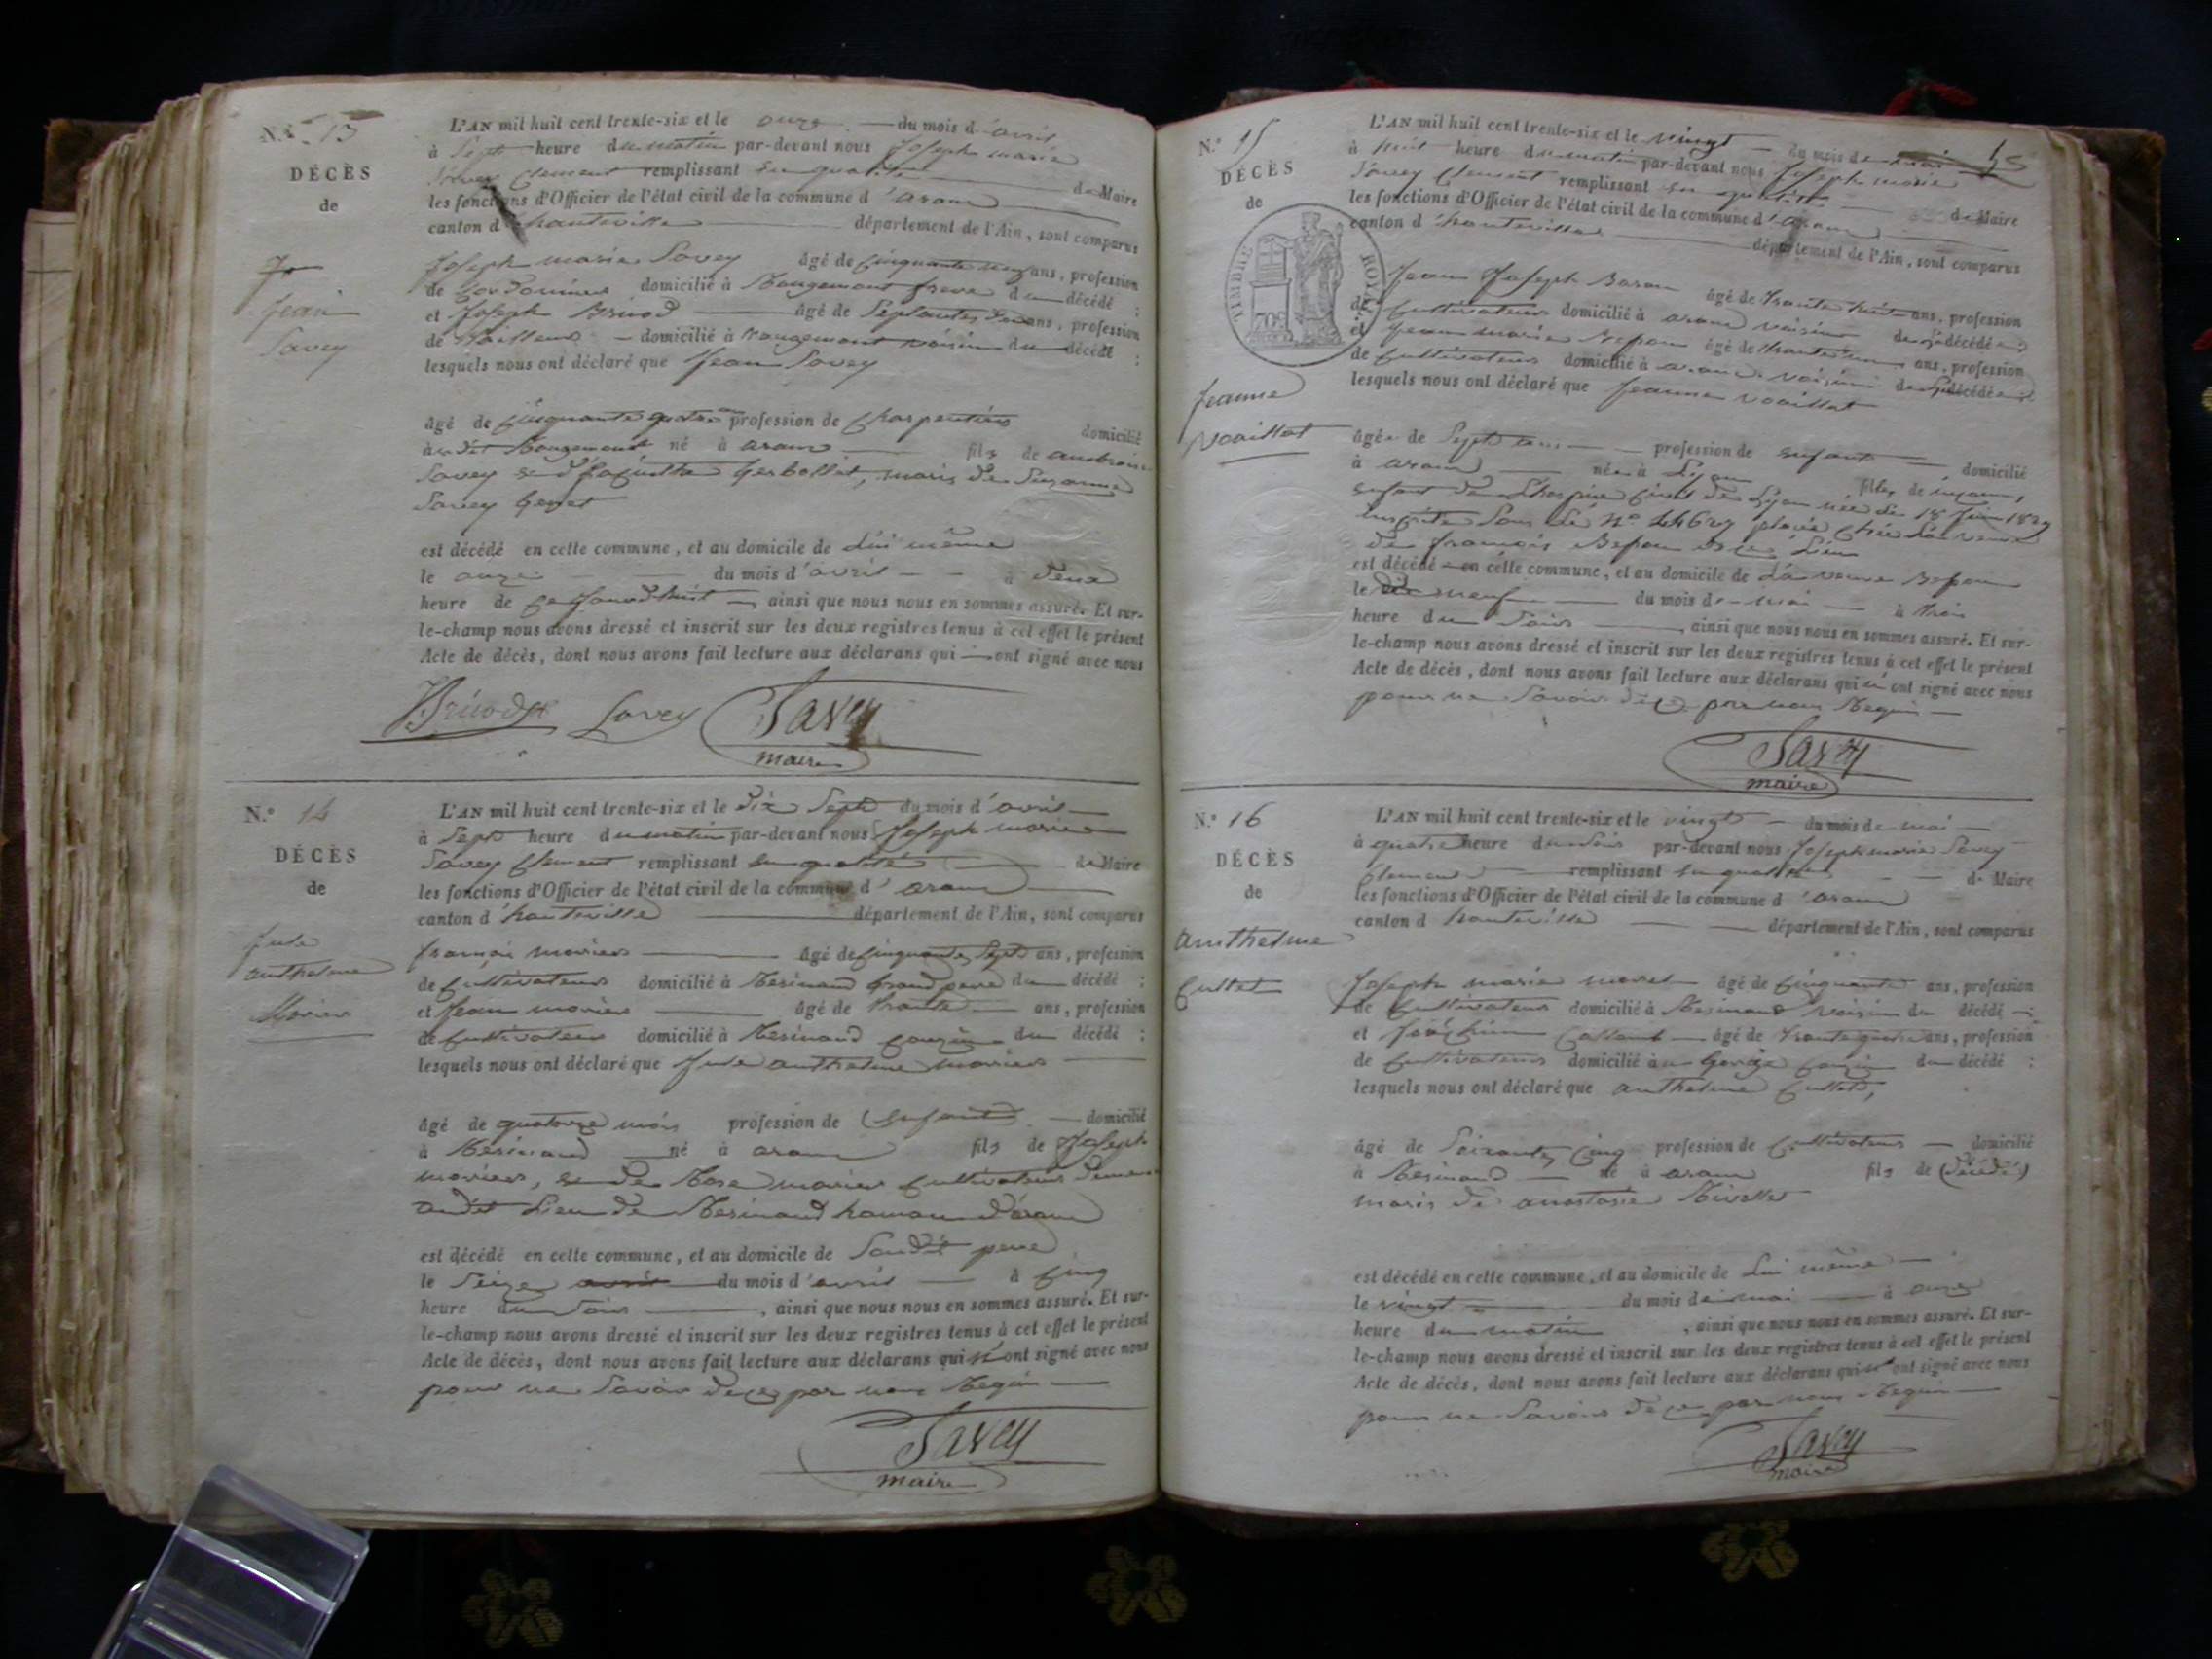 N.° 13
DÉCÈS
de
Jean
Savey
L'AN mil huit cent trente-six et le onze du mois d'avril
à Sept heure du matin par-devant nous Joseph marie
Savey Clement remplissant en qualité de Maire
les fonctions d'Officier de l'état civil de la commune d'aranc
canton d'hauteville département de l'Ain, sont comparus
Joseph marie Savey âgé de Cinquante ans, profession
de Cordonnier domicilié à Rougemont frere du décédé ;
et Joseph Brunod âgé de ans, profession
de tailleur domicilié à Rougemont voisin du décédé ;
lesquels nous ont déclaré que Jean Savey
âgé de Cinquante quatre ans profession de Charpentier domicilié
audit Rougemont né à aranc fils de ambroise
Savey et d' Gerbollet, maris de Suzanne
Savey Genet
est décédé en cette commune, et au domicile de Lui même
le onze du mois d'avril à deux
heure de ce jourd'huit ainsi que nous nous en sommes assuré. Et sur-
le-champ nous avons dressé et inscrit sur les deux registres tenus à cet effet le présent
Acte de décès, dont nous avons fait lecture aux déclarans qui ont signé avec nous
Savey Savey
maire
N.° 14
DÉCÈS
de
Jule
anthelme
Morier
L'AN mil huit cent trente-six et le dix Sept du mois d'avril
à Sept heure du matin par-devant nous Joseph marie
Savey Clement remplissant en qualité de Maire
les fonctions d'Officier de l'état civil de la commune d'aranc
canton d'hauteville département de l'Ain, sont comparus
françois morier âgé de Cinquante Sept ans, profession
de Cultivateur domicilié à Resinand Grand pere du décédé ;
et Jean morier âgé de trante ans, profession
de Cultivateur domicilié à Resinand Couzin du décédé ;
lesquels nous ont déclaré que Jule anthelme morier
âgé de quatorze mois profession de Enfant domicilié
à Resinand né à aranc fils de Joseph
morier, et de Rose morier Cultivateur
audit Lieu de Resinand hamau d'aranc
est décédé en cette commune, et au domicile de Soudit pere
le Seize du mois d'avril à Cinq
heure du Soir, ainsi que nous nous en sommes assuré. Et sur-
le-champ nous avons dressé et inscrit sur les deux registres tenus à cet effet le présent
Acte de décès, dont nous avons fait lecture aux déclarans qui n'ont signé avec nous
pour ne Savoir de ce par nous Requi
Savey
maire
N.° 15
DÉCÈS
de
TIMBRE ROYAL
70c
Jeanne
Voaillat
L'AN mil huit cent trente-six et le vingt du mois de mai
à huit heure du matin par-devant nous Joseph marie
Savey Clement remplissant en qualité de Maire
les fonctions d'Officier de l'état civil de la commune d'aranc
canton d'hauteville département de l'Ain, sont comparus
Jean Joseph Baron âgé de trante huit ans, profession
de Cultivateur domicilié à aranc voisin de la décédée
et Jean marie âgé de ans, profession
de Cultivateur domicilié à aranc voisin de la décédée
lesquels nous ont déclaré que Jeanne Voaillat
âgée de Sept ans profession de enfant domicilié
à aranc née à Lyon fille de inconnu,
enfant de L'hospice Civil de Lyon née le 18 Juin 1829
Sous Le N° placée Chée La veuve
de françois de ce Lieu
est décédé en cette commune, et au domicile de La veuve
le dix neuf du mois de mai à trois
heure du Soir, ainsi que nous nous en sommes assuré. Et sur-
le-champ nous avons dressé et inscrit sur les deux registres tenus à cet effet le présent
Acte de décès, dont nous avons fait lecture aux déclarans qui n'ont signé avec nous
pour ne Savoir de ce par nous Requi
Savey
maire
N.° 16
DÉCÈS
de
anthelme
Cullet
L'AN mil huit cent trente-six et le vingt du mois de mai
à quatre heure du Soir par-devant nous Joseph marie Savey
Clement remplissant en qualité de Maire
les fonctions d'Officier de l'état civil de la commune d'aranc
canton d hauteville département de l'Ain, sont comparus
Joseph marie morel âgé de Cinquante ans, profession
de Cultivateur domicilié à Resinand voisin du décédé ;
et Joachim âgé de trante quatre ans, profession
de Cultivateur domicilié à Couzin du décédé ;
lesquels nous ont déclaré que anthelme Cullet,
âgé de Soixante Cinq profession de Cultivateur domicilié
à Resinand né à aranc fils de (décédé)
maris de anastasie Rivollet
est décédé en cette commune, et au domicile de Lui même
le vingt du mois de mai à onze
heure du matin, ainsi que nous nous en sommes assuré. Et sur-
le-champ nous avons dressé et inscrit sur les deux registres tenus à cet effet le présent
Acte de décès, dont nous avons fait lecture aux déclarans qui n'ont signé avec nous
pour ne Savoir de ce par nous Requi
Savey
maire